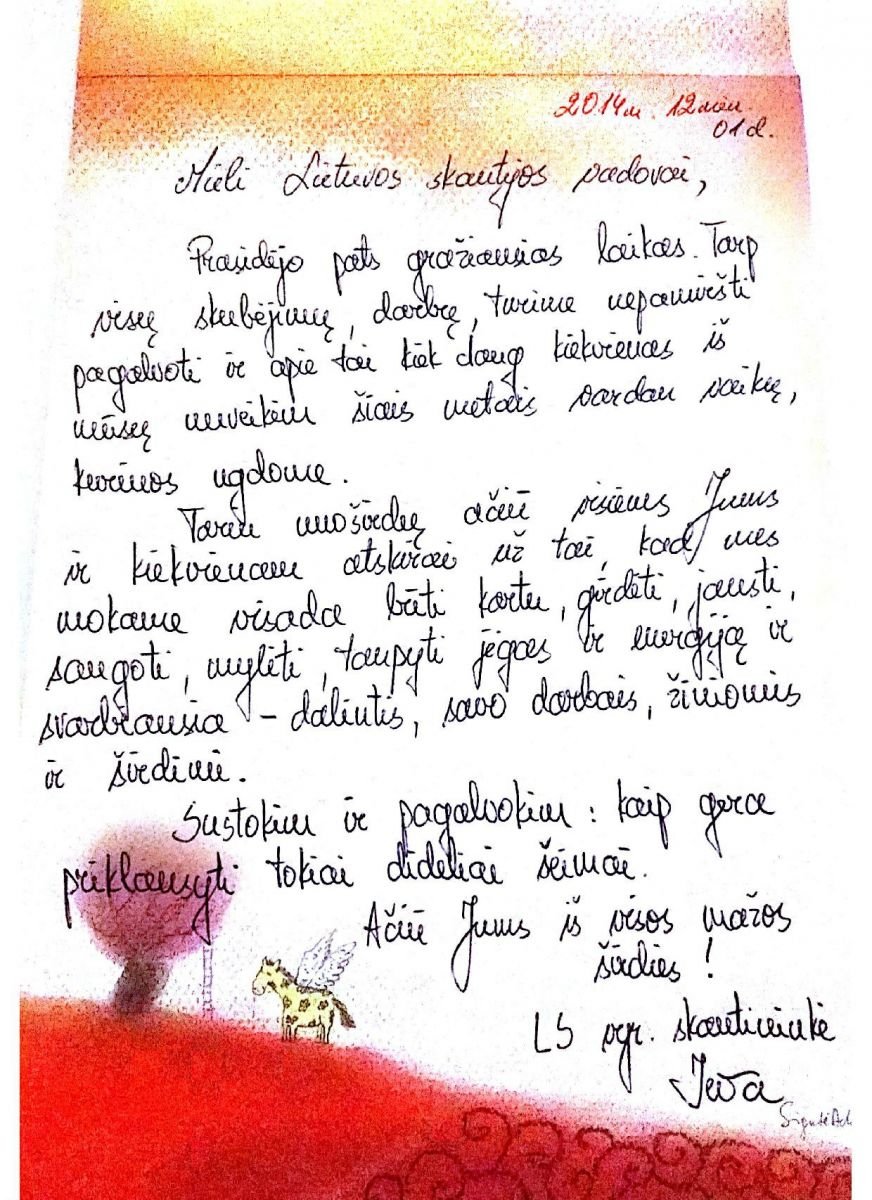 2014m. 12mėn.
01d.
Mieli Lietuvos skautijos vadovai,
Prasidėjo pats gražiausias laikas. Tarp
visų skubėjimų, darbų, turime nepamiršti
pagalvoti ir apie tai kiek daug kiekvienas iš
mūsų nuveikėm šiais metais vardan vaikų,
kuriuos ugdome.
Tariu nuoširdų ačiū visiems Jums
ir kiekvienam atskirai už tai, kad mes
mokame visada būti kartu, girdėti, jausti,
saugoti, mylėti, taupyti jėgas ir energiją ir
svarbiausia - dalintis, savo darbais, žiniomis
ir širdimi.
Sustokim ir pagalvokim: kaip gera
priklausyti tokiai didelei šeimai.
Ačiū Jums iš visos mažos
širdies!
LS vyr. skautininkė
Ieva